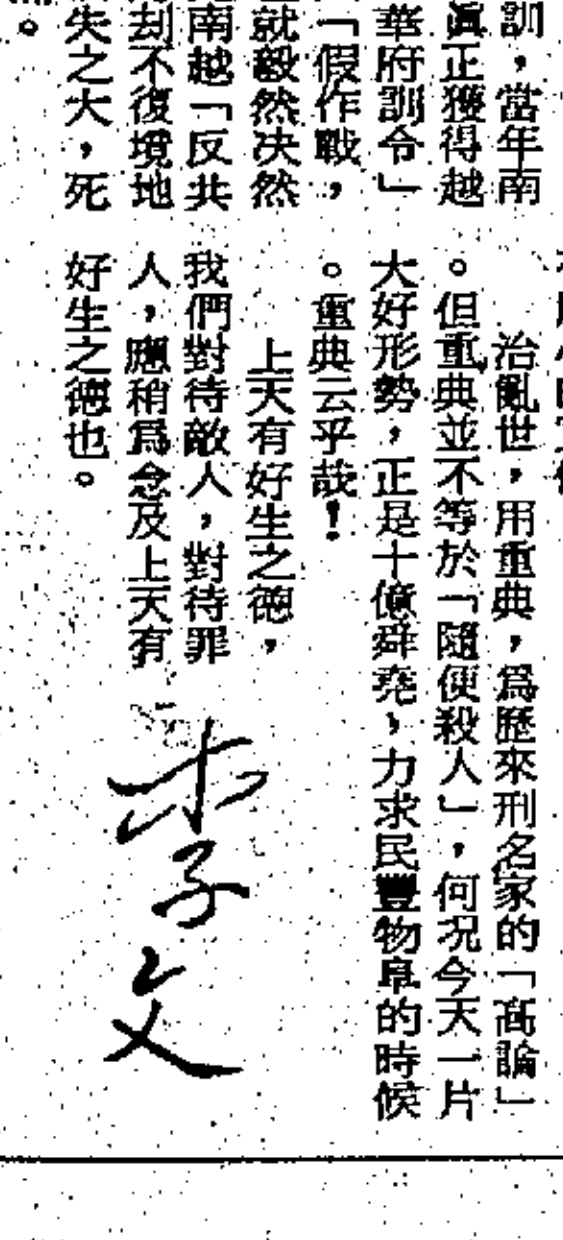 訓，當年南
眞正獲得越
華府訓令」
「假作戰，
就毅然决然
南越「反共
刧不復境地
失之大，死
。
治亂世，用重典，爲歷來刑名家的「高論」
。但重典並不等於「隨便殺人」，何况今天一片
大好形勢，正是十億舜堯，力求民豐物阜的時候
。重典云乎哉！
上天有好生之德，
我們對待敵人，對待罪
人，應稍爲念及上天有
好生之德也。
李文